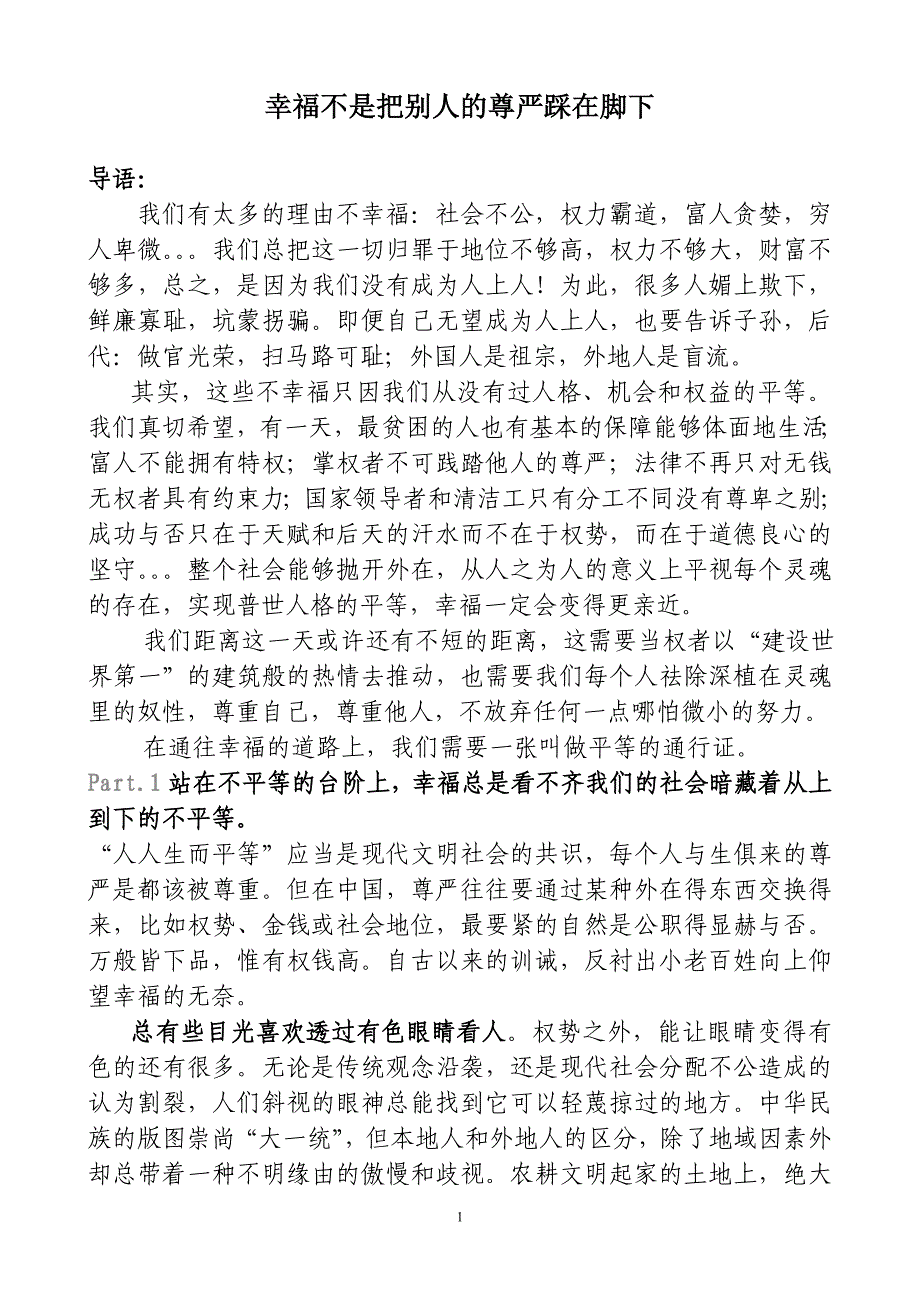 幸福不是把别人的尊严踩在脚下
导语：
我们有太多的理由不幸福：社会不公，权力霸道，富人贪婪，穷
人卑微。。。我们总把这一切归罪于地位不够高，权力不够大，财富不
够多，总之，是因为我们没有成为人上人！为此，很多人媚上欺下，
鲜廉寡耻，坑蒙拐骗。即便自己无望成为人上人，也要告诉子孙，后
代：做官光荣，扫马路可耻；外国人是祖宗，外地人是盲流。
其实，这些不幸福只因我们从没有过人格、机会和权益的平等。
我们真切希望，有一天，最贫困的人也有基本的保障能够体面地生活；
富人不能拥有特权；掌权者不可践踏他人的尊严；法律不再只对无钱
无权者具有约束力；国家领导者和清洁工只有分工不同没有尊卑之别；
成功与否只在于天赋和后天的汗水而不在于权势，而在于道德良心的
坚守。。。整个社会能够抛开外在，从人之为人的意义上平视每个灵魂
的存在，实现普世人格的平等，幸福一定会变得更亲近。
我们距离这一天或许还有不短的距离，这需要当权者以“建设世
界第一”的建筑般的热情去推动，也需要我们每个人祛除深植在灵魂
里的奴性，尊重自己，尊重他人，不放弃任何一点哪怕微小的努力。
在通往幸福的道路上，我们需要一张叫做平等的通行证。
Part.1 站在不平等的台阶上，幸福总是看不齐我们的社会暗藏着从上
到下的不平等。
“人人生而平等”应当是现代文明社会的共识，每个人与生俱来的尊
严是都该被尊重。但在中国，尊严往往要通过某种外在得东西交换得
来，比如权势、金钱或社会地位，最要紧的自然是公职得显赫与否。
万般皆下品，惟有权钱高。自古以来的训诫，反衬出小老百姓向上仰
望幸福的无奈。
总有些目光喜欢透过有色眼睛看人。权势之外，能让眼睛变得有
色的还有很多。无论是传统观念沿袭，还是现代社会分配不公造成的
认为割裂，人们斜视的眼神总能找到它可以轻蔑掠过的地方。中华民
族的版图崇尚“大一统”，但本地人和外地人的区分，除了地域因素外
却总带着一种不明缘由的傲慢和歧视。农耕文明起家的土地上，绝大
1